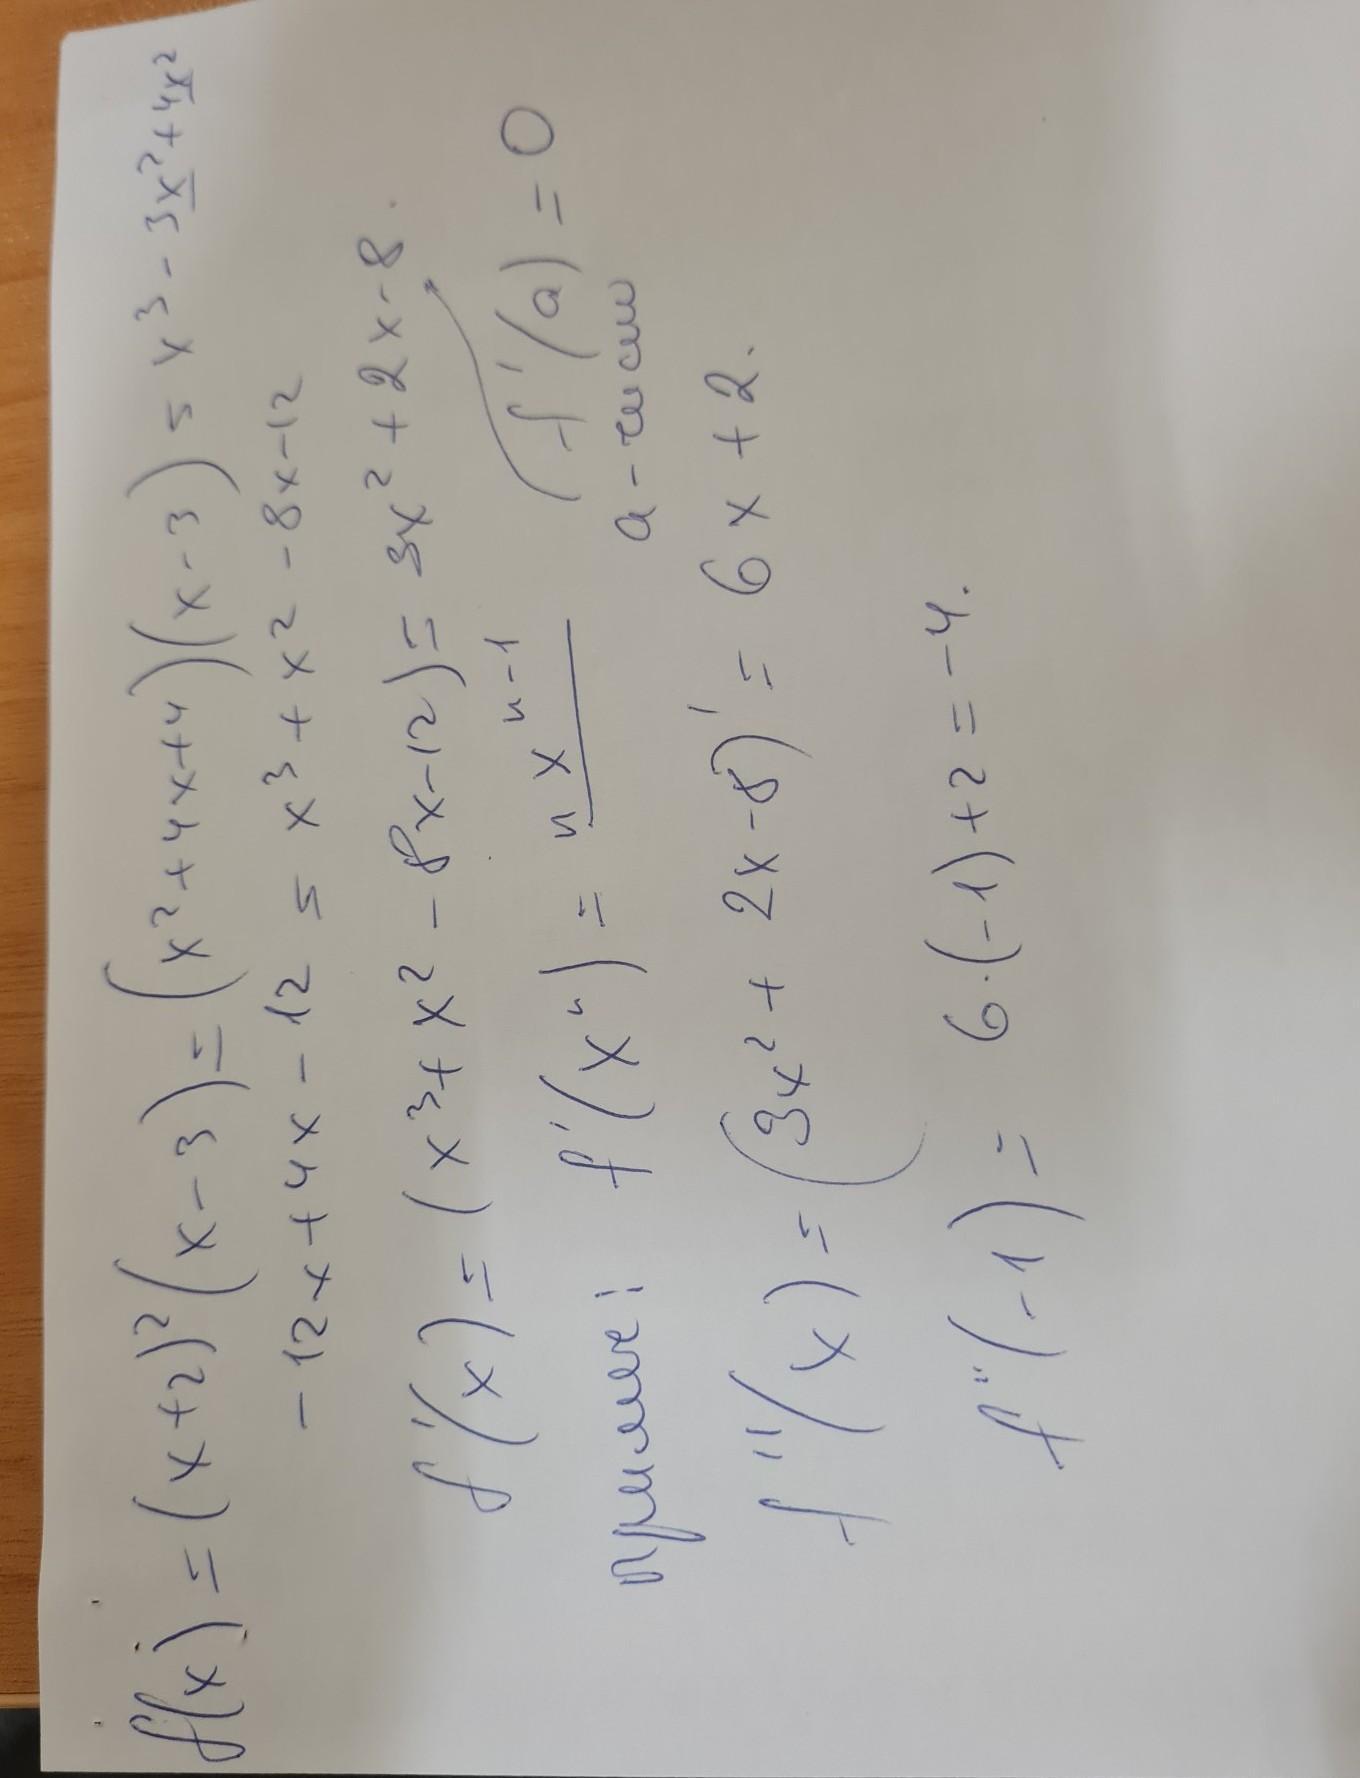 f(x) = (x+2)²(x-3) = (x²+4x+4)(x-3) = x³ - 3x² + 4x²
- 12x + 4x - 12 = x³ + x² - 8x - 12
f'(x) = (x³ + x² - 8x - 12) = 3x² + 2x - 8.
примеч: f'(xⁿ) = n xⁿ⁻¹ (f'(a) = 0
a - число
f''(x) = (3x² + 2x - 8)' = 6x + 2.
f''(-1) = 6·(-1) + 2 = -4.